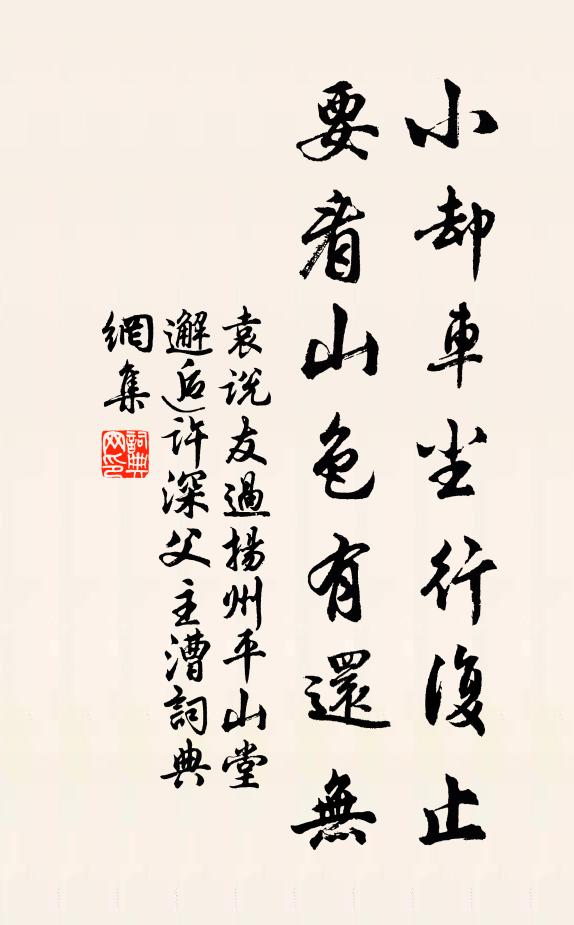 小却車尘行復止
要看山色有還無
袁说友過揚州平山堂
邂逅许深父主漕詞典
網集
詞典
网印